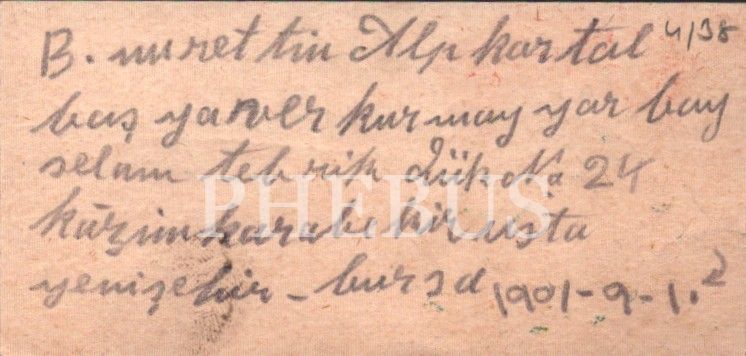 B. nurettin Alpkartal 4/38
baş yaver kurmay yarbay
selam tebrik dük No 24
kâzımkarabekir usta
yenişehir - bursa 1901-9-1.
PHEBUS